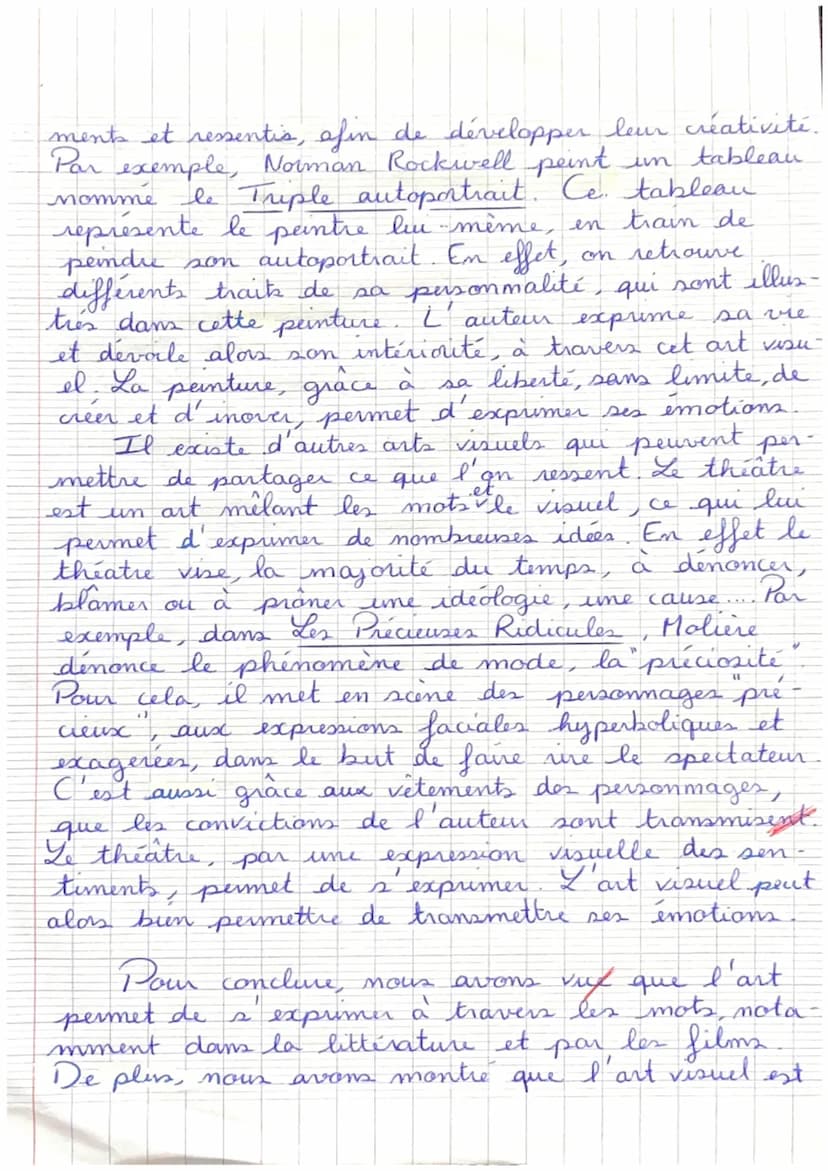 ments et ressentis, afin de développer leur créativité.
Par exemple, Norman Rockwell peint un tableau
nommé le Triple autoportrait. Ce tableau
représente le peintre lui-même, en train de
peindre son autoportrait. En effet, on retrouve
différents traits de sa personnalité, qui sont illus-
trés dans cette peinture. L'auteur exprime sa vie
et dévoile alors son intériorité, à travers cet art visu-
el. La peinture, grâce à sa liberté, sans limite, de
créer et d'inover, permet d'exprimer ses émotions.
Il existe d'autres arts visuels qui peuvent per-
mettre de partager ce que l'on ressent. Le théâtre
est un art mêlant les mots et le visuel, ce qui lui
permet d'exprimer de nombreuses idées. En effet le
théatre vise, la majorité du temps, à dénoncer,
blâmer ou à prôner une idéologie, une cause.... Par
exemple, dans Les Précieuses Ridicules, Molière
dénonce le phénomène de mode, la "préciosité".
Pour cela, il met en scène des personnages "pré-
cieux", aux expressions faciales hyperboliques et
exagerées, dans le but de faire rire le spectateur.
C'est aussi grâce aux vêtements des personnages,
que les convictions de l'auteur sont transmisent.
Le théâtre, par une expression visuelle des sen-
timents, permet de s'exprimer. L'art visuel peut
alors bien permettre de transmettre ses émotions.
Pour conclure, nous avons vue que l'art
permet de s'exprimer à travers les mots, nota-
mment dans la littérature et par les films.
De plus, nous avons montré que l'art visuel est